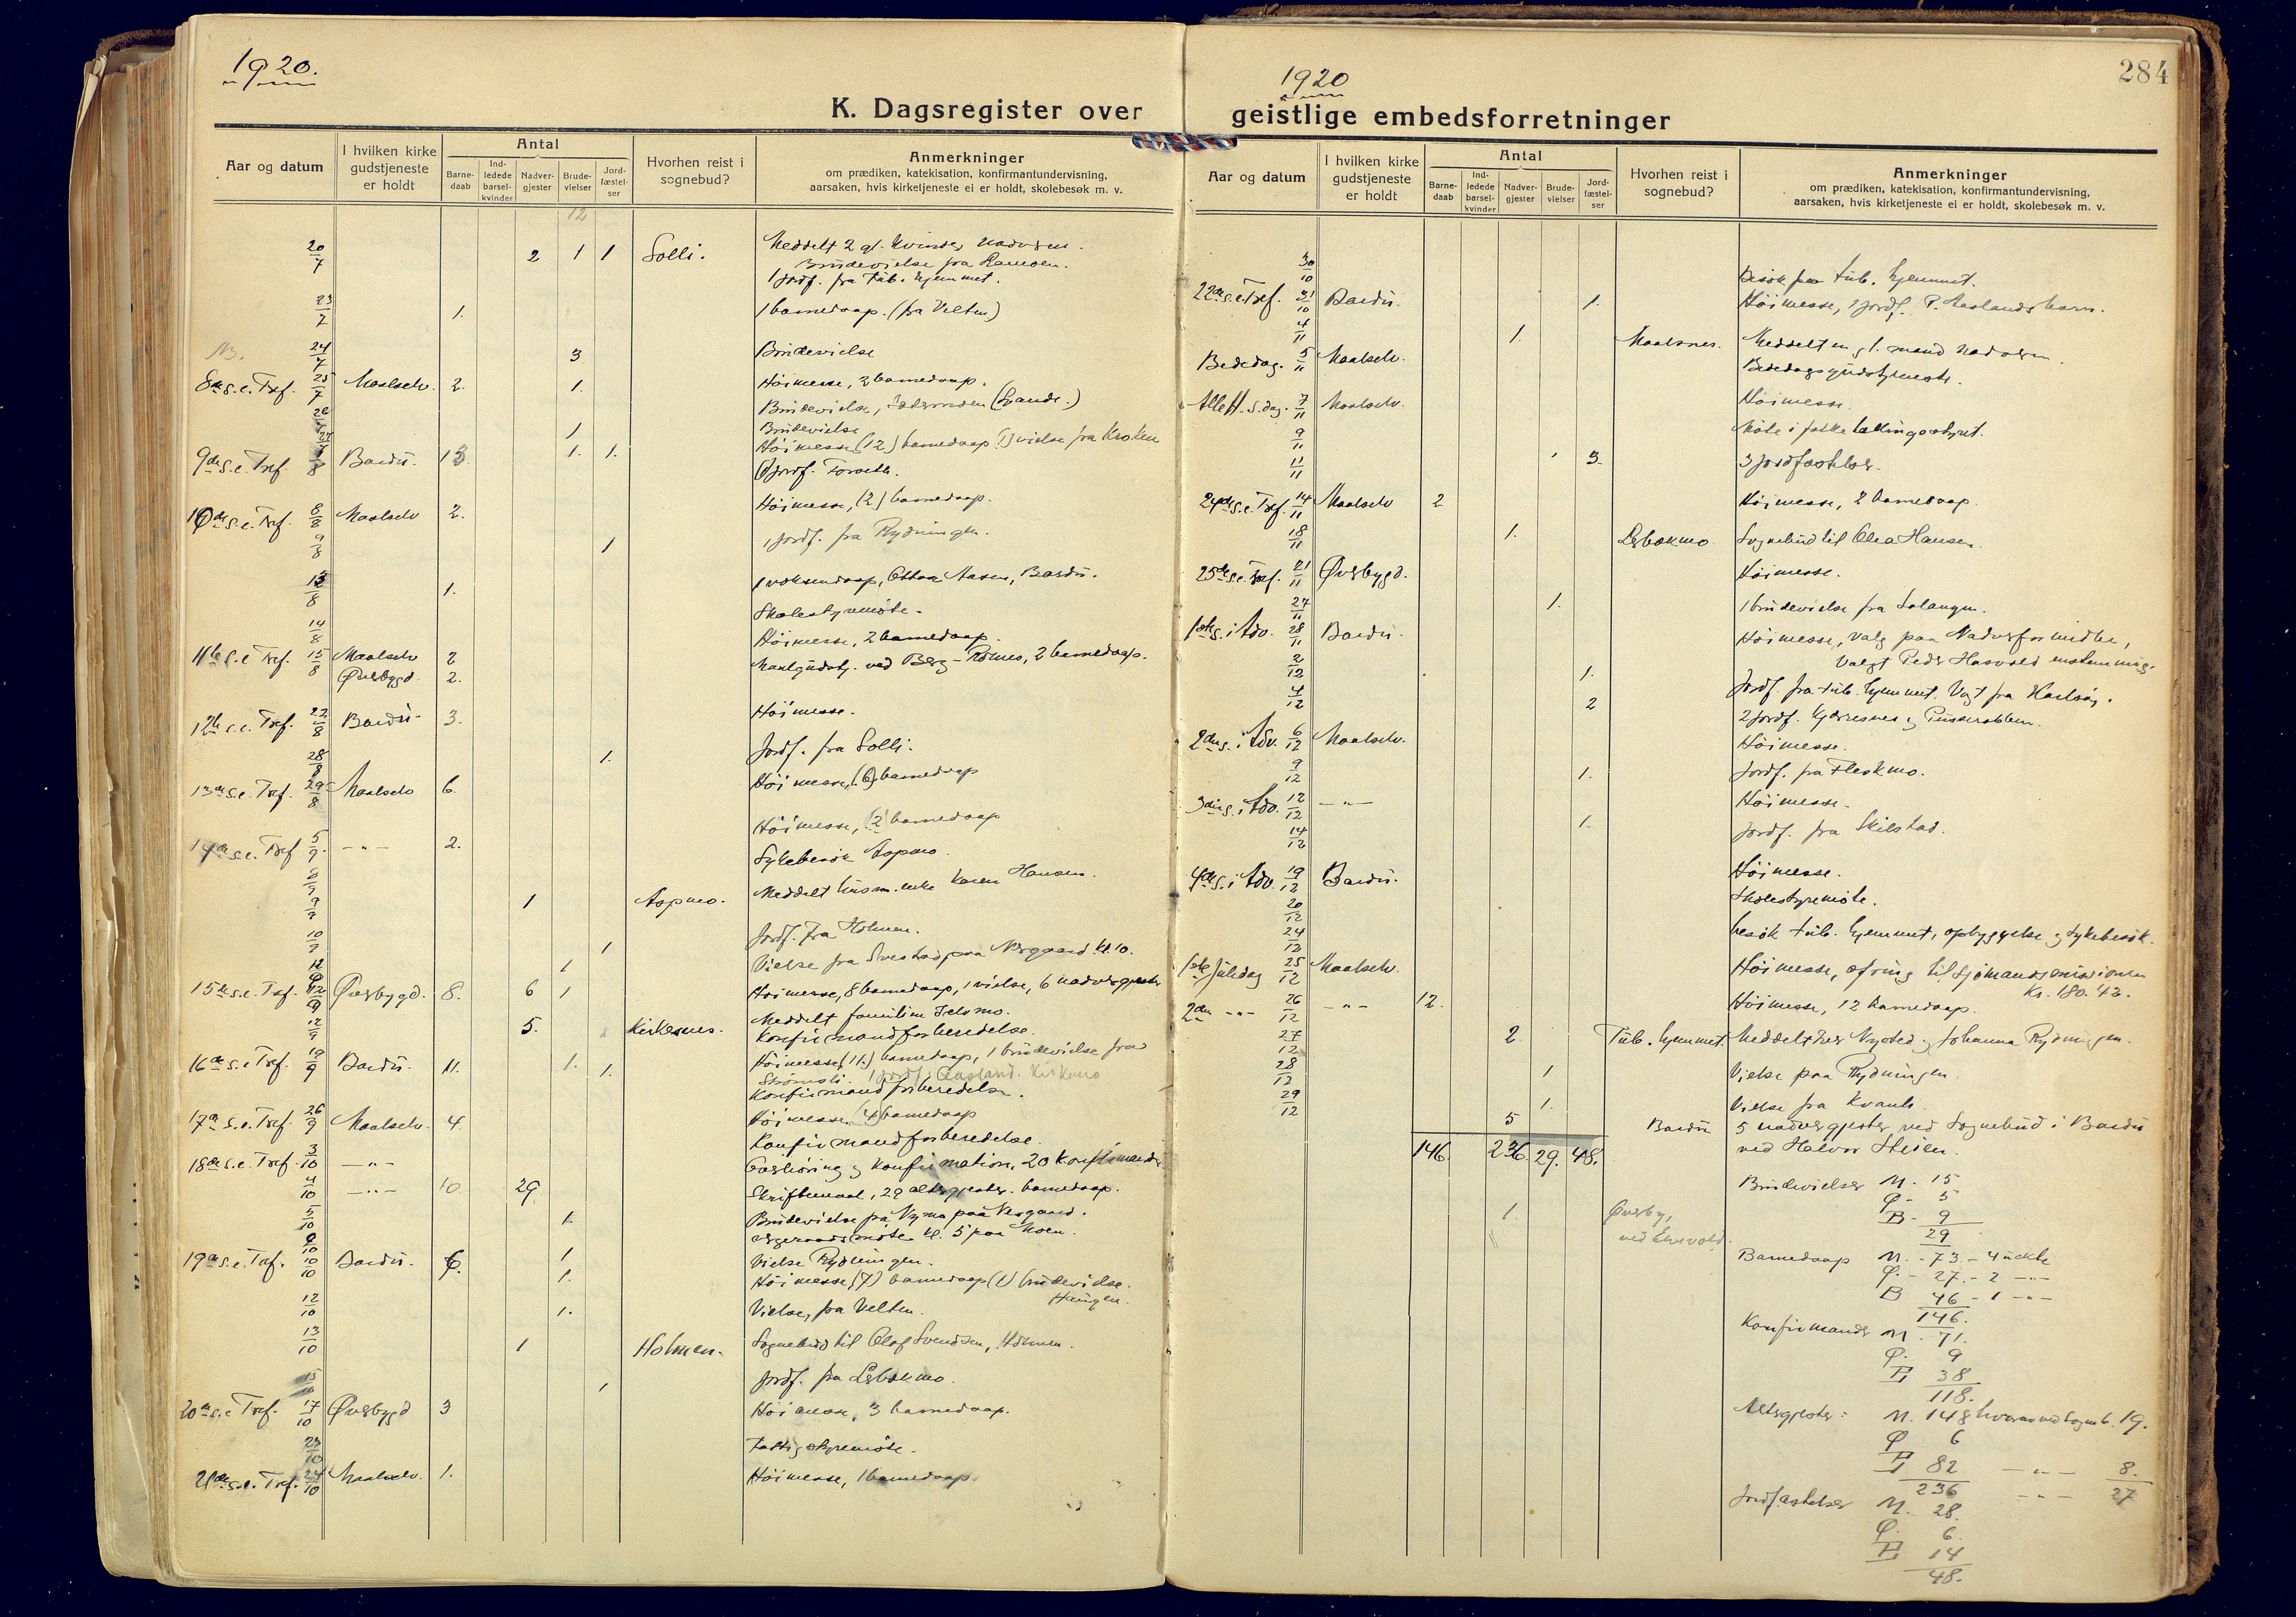 1920.
K. Dagsregister over
Aar og datum
I hvilken kirke gudstjeneste er holdt
Antal
Barne-daab
Ind-ledede barsel-kvinder
Nadver-gjester
Brude-vielser
Jord-fæstel-ser
Hvorhen reist i sognebud?
Anmerkninger
om prædiken, katekisation, konfirmantundervisning,
aarsaken, hvis kirketjeneste ei er holdt, skolebesøk m. v.
12
20/7 2 1 1 Solli. Meddelt 2 gl. kvinder nadveren.
Brudevielse fra
1 jordf. fra tub. hjemmet.
23/7 1. 1 barnedaap. (fra Velten)
24/7 3 Brudevielse
8de s. e. Tref. 25/7 Maalselv. 2. 1. Høimesse, 2 barnedaap.
Brudevielse,
1 Brudevielse
9de s. e. Tref. 8 Bardu. 13. 1. 1. Høimesse (12) barnedaap (1) vielse fra Kroken
(1) jordf.
10de s. e. Tref. 8/8 Maalselv 2. Høimesse, (2) barnedaap.
9/8 1 1 jordf. fra Rydningen.
/8 1. 1 voksendaap, Aasen, Bardu.
14/8 Skolestyremöte.
11te s. e. Tref. 15/8 Maalselv 2 Höimesse, 2 barnedaap.
Øverbygd. 2. ved Berg - 2 barnedaap.
12te s. e. Tref. 22/8 Bardu. 3. Höimesse.
28/8 1. Jordf. fra Solli.
13de s. e. Tref. 29/8 Maalselv 6. Höimesse, (6) barnedaap
14de s. e. Tref. 5/9. -"- 2. Höimesse, (2) barnedaap
8/9 Sykebesök Aspmo.
9/9 1 Aspmo. Meddelt husm. enke Karen Hansen.
10/9 1 Jordf. fra Holmen.
1 Vielse fra paa Nergaard kl. 10.
15de s. e. Tref. 12/9 Øverbygd. 8. 6 1 Höimesse, 8 barnedaap, 1 vielse, 6 nadvergjester
12/9 5. Kirkesnes. Meddelt familien
Konfirmandforberedelse.
16de s. e. Tref. 19/9 Bardu. 11. 1. 1. Höimesse, (11.) barnedaap, 1 brudevielse fra
Strömsli.
Konfirmandforberedelse.
17de s. e. Tref. 26/9 Maalselv. 4. Höimesse, (4) barnedaap
Konfirmandforberedelse.
18de s. e. Tref. 3/10 -"- Overhöring og Konfirmation, 20 Konfirmander
4/10 -"- 10. 29 Skriftemaal, 29 altergjester. barnedaap.
5/10 1. Brudevielse fra paa Nergaard.
Vergeraadsmöte kl. 5 paa Moen.
1 Vielse Rydningen.
19de s. e. Tref. 10/10 Bardu. 1. Höimesse, (7) barnedaap (1) brudevielse.
Haugen.
12/10 1. Vielse, fra Velten.
13/10 1 Holmen. Sognebud til Olaf Svendsen, Holmen.
1 Jordf. fra
20de s. e. Tref. 17/10 Øverbygd 3 Höimesse, 3 barnedaap.
23/10 Fattigstyremöte.
21de s. e. Tref. 24/10 Maalselv. 1. Höimesse, 1 barnedaap.
1920
284
geistlige embedsforretninger
Aar og datum
I hvilken kirke gudstjeneste er holdt
Antal
Barne-daab
Ind-ledede barsel-kvinder
Nadver-gjester
Brude-vielser
Jord-fæstel-ser
Hvorhen reist i sognebud?
Anmerkninger
om prædiken, katekisation, konfirmantundervisning,
aarsaken, hvis kirketjeneste ei er holdt, skolebesøk m. v.
30/10 Besök paa tub. hjemmet.
22de s. e. Tref. 31/10 Bardu. 1. Höimesse, 1 jordf. P. barn.
4/11 1. Maalsnes. Meddelt en gl. mand nadveren.
Bededag. 5/11 Maalselv. Bededagsgudstjeneste.
Alle H. s. dag. 7/11 Maalselv. Höimesse.
9/11 Möte i folketællingsstyret.
11/11 3. 3 jordfæstelser.
24de s. e. Tref. 14/11 Maalselv 2 Höimesse, 2 barnedaap.
18/11 1. Sognebud til Olea Hansen.
25de s. e. Tref. 21/11 Øverbygd. Höimesse.
27/11 1. 1 brudevielse fra Salangen.
1ste s. i Adv. 28/11 Bardu. Höimesse, valg paa
valgt Peder enstemmig.
2/12 1. Jordf. fra tub. hjemmet.
4/12 2 2 jordf.
2den s. i Adv. 6/12 Maalselv. Höimesse.
9/12 1. Jordf. fra Fleskmo.
3die s. i Adv. 12/12 -"- Höimesse.
14/12 1. Jordf. fra Skilstad.
4de s. i Adv. 19/12 Bardu. Höimesse.
20/12 Skolestyremöte.
24/12 besök tub. hjemmet, opbyggelse og sykebesök.
1ste juledag 25/12 Maalselv. Höimesse, ofring til sjömandsmissionen
Kr. 180.43.
2den -"- 26/12 -"- 12. Höimesse, 12 barnedaap.
27/12 2 Tub. hjemmet. Meddelt Nysted og Johanna Rydningen.
28/12 1 Vielse paa Rydningen.
29/12 1. Vielse fra
5 Bardu 5 nadvergjester ved Sognebud i Bardu
ved Halvor
146. 236. 29. 48.
1. Øverby,
Brudevielser M. 15
Ø. 5
B. 9
29
Barnedaap M. - 73 - 4 uekte
Ø. - 27. - 2 -"-
B 46 - 1 -"-
146.
Konfirmander M. 71.
Ø. 9
B 38
118.
Altergjester: M. 148 hvorav ved sogneb. 19.
Ø 6
B 82 -"- 8.
236 -"- 27
Jordfæstelser M. 28.
Ø. 6.
B 14
48.